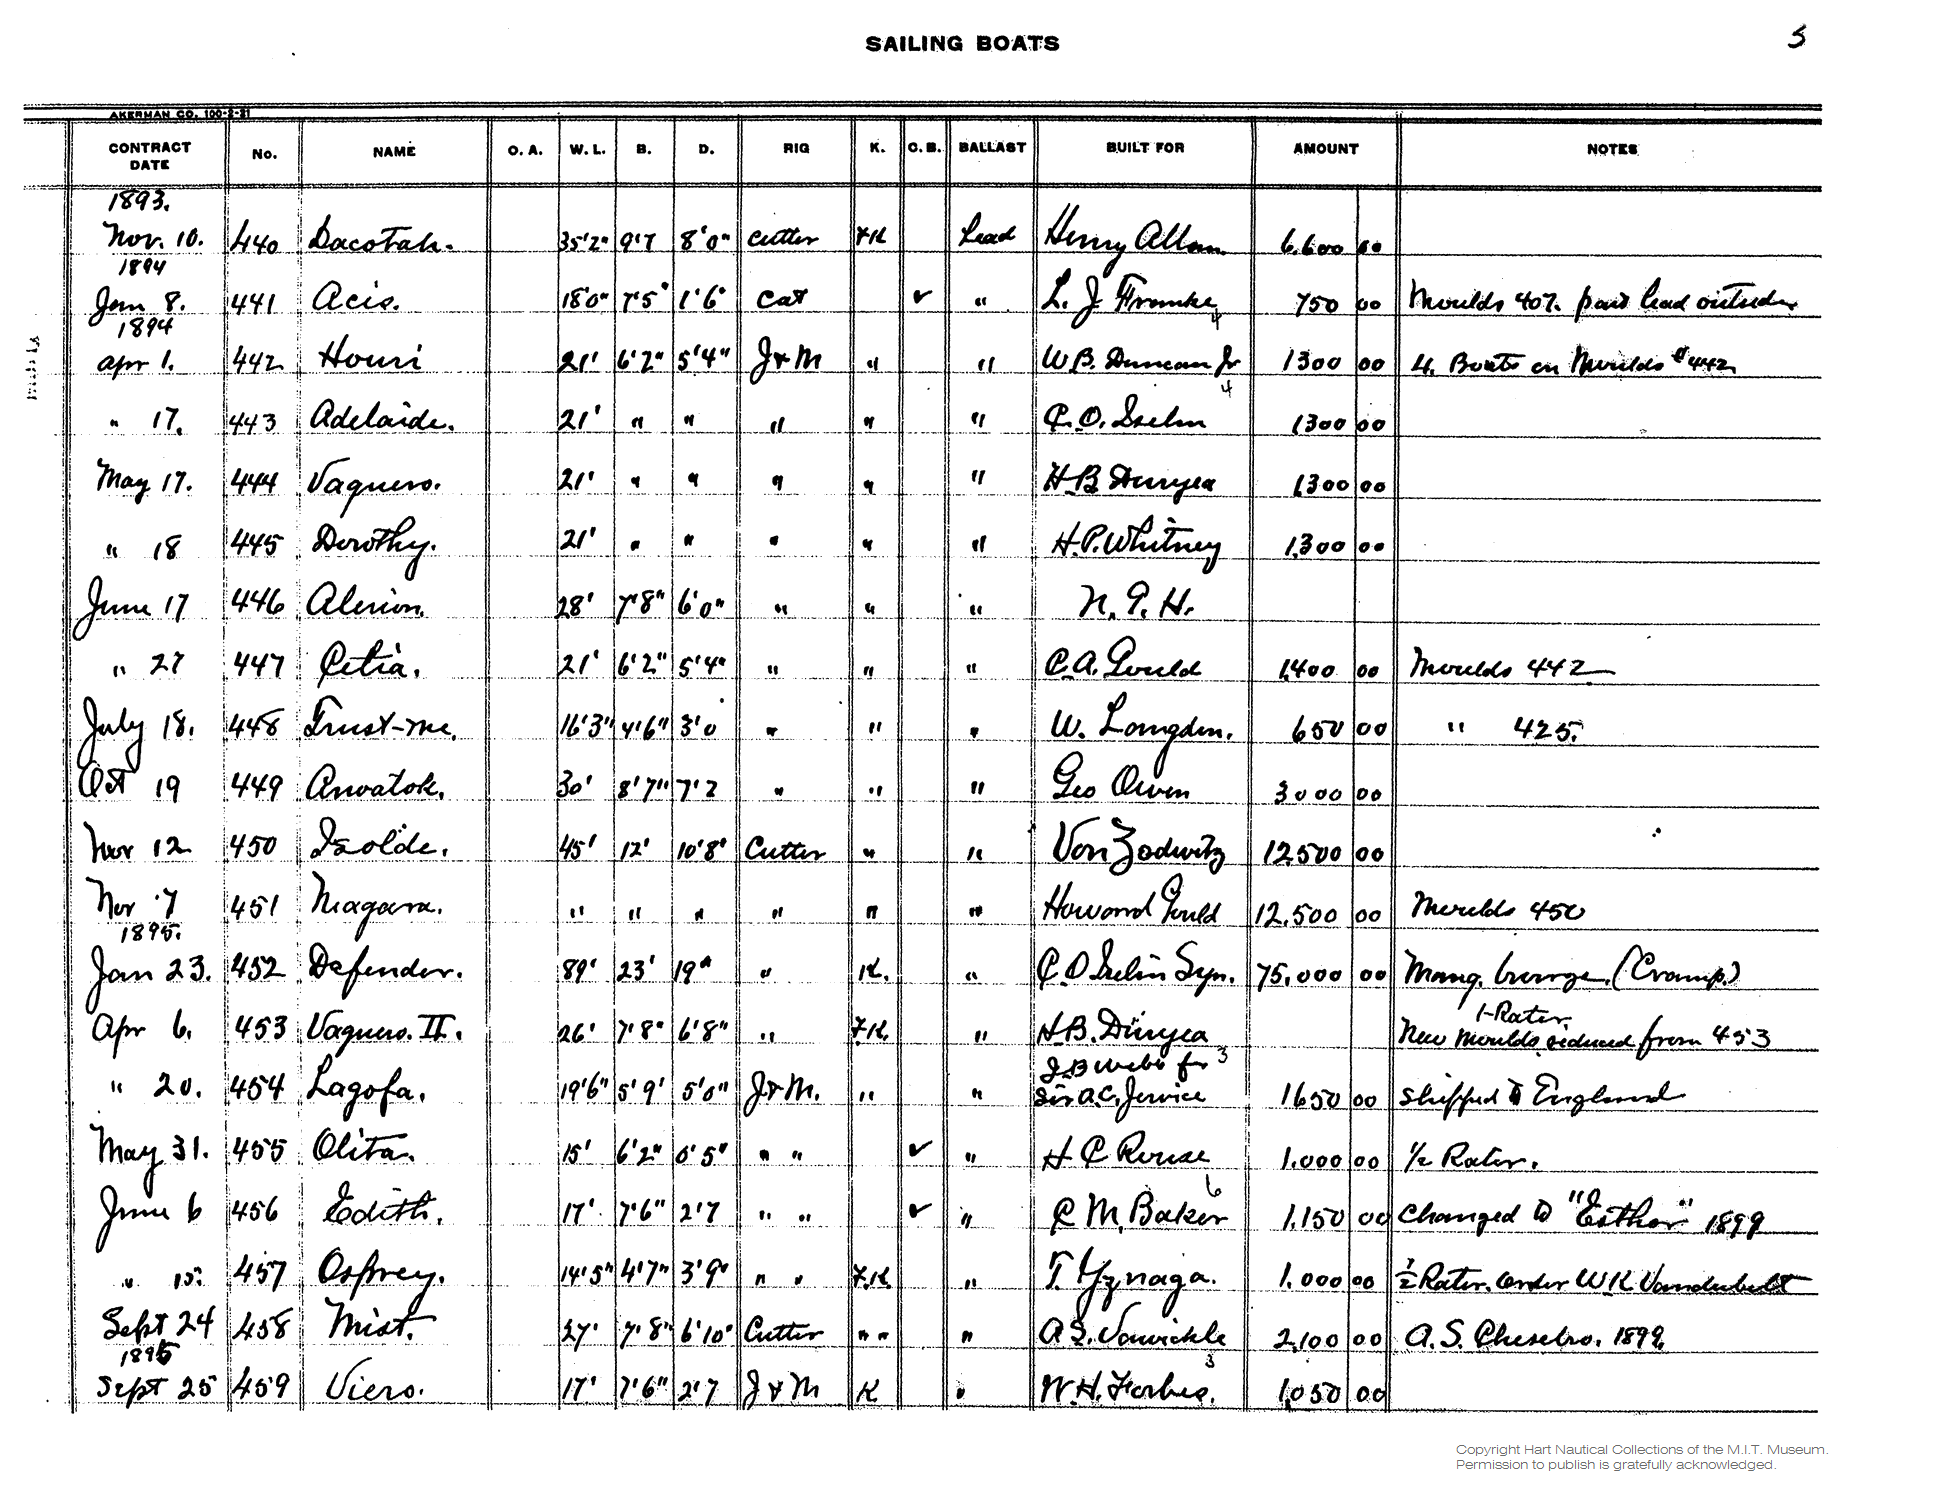 SAILING BOATS 5
AKERMAN CO. 100-2-21
CONTRACT DATE No. NAME O. A. W. L. B. D. RIG K. C. B. BALLAST BUILT FOR AMOUNT NOTES
1893.
Nov. 10. 440 Dacotah. 35'2" 9'7 8'0" Cutter FK Lead Henry Allan 6.600 00
1894
Jan 8. 441 Acis. 18'0" 7'5" 1'6" Cat ✓ " L. J. 750 00 Moulds 407. part lead outside
4
1894
Apr 1. 442 Houri 21' 6'2" 5'4" J & M " " W B. Duncan Jr 1300 00 4. Boats on Moulds #442
4
" 17. 443 Adelaide. 21' " " " " " C. O. Iselin 1300 00
May 17. 444 Vaquero. 21' " " " " " H. B Duryea 1300 00
" 18 445 Dorothy. 21' " " " " " H. P. Whitney 1300 00
June 17 446 Alerion. 28' 7'8" 6'0" " " " N. G. H.
" 27 447 Cetia. 21' 6'2" 5'4" " " " C. A. Gould 1400 00 Moulds 442
July 18. 448 Trust-me. 16'3" 4'6" 3'0 " " " W. Longdon. 650 00 " 425.
Oct 19 449 Anwatok. 30' 8'7" 7'2 " " " Geo Owen 3000 00
Nov 12 450 Isolde. 45' 12' 10'8" Cutter " " Von Zedwitz 12500 00
Nov 7 451 Niagara. " " " " " " Howard Gould 12.500 00 Moulds 450
1895.
Jan 23. 452 Defender. 89' 23' 19" " K. " C. O Iselin Syn. 75.000 00 Mang. bronze. (Cramp.)
1-Rater.
Apr 6. 453 Vaquero. II. 26' 7'8" 6'8" " F.K. " H. B. Duryea New Moulds reduced from 453
J B Webb for 3
" 20. 454 Lagofa. 19'6" 5'9' 5'0" J & M. " " Sir A. C. Jervice 1650 00 Shipped to England
May 31. 455 Olita. 15' 6'2" 0'5" " " ✓ " H C Rouse 1.000 00 ½ Rater.
6
June 6 456 Edith. 17' 7'6" 2'7 " " ✓ " C M. Baker 1.150 00 Changed to "Esther" 1899
" 15. 457 Osprey. 14'5" 4'7" 3'9" " " F.K " T. Yznaga. 1.000 00 ½ Rater. order W K Vanderbilt
Sept 24 458 Mist. 27' 7'8" 6'10" Cutter " " " A S. Vanwickle 2,100 00 A. S. Chesebro. 1899.
3
1895
Sept 25 459 Viero. 17' 7'6" 2'7 J & M K " W. H. Forbes. 1,050 00
Copyright Hart Nautical Collections of the M.I.T. Museum.
Permission to publish is gratefully acknowledged.